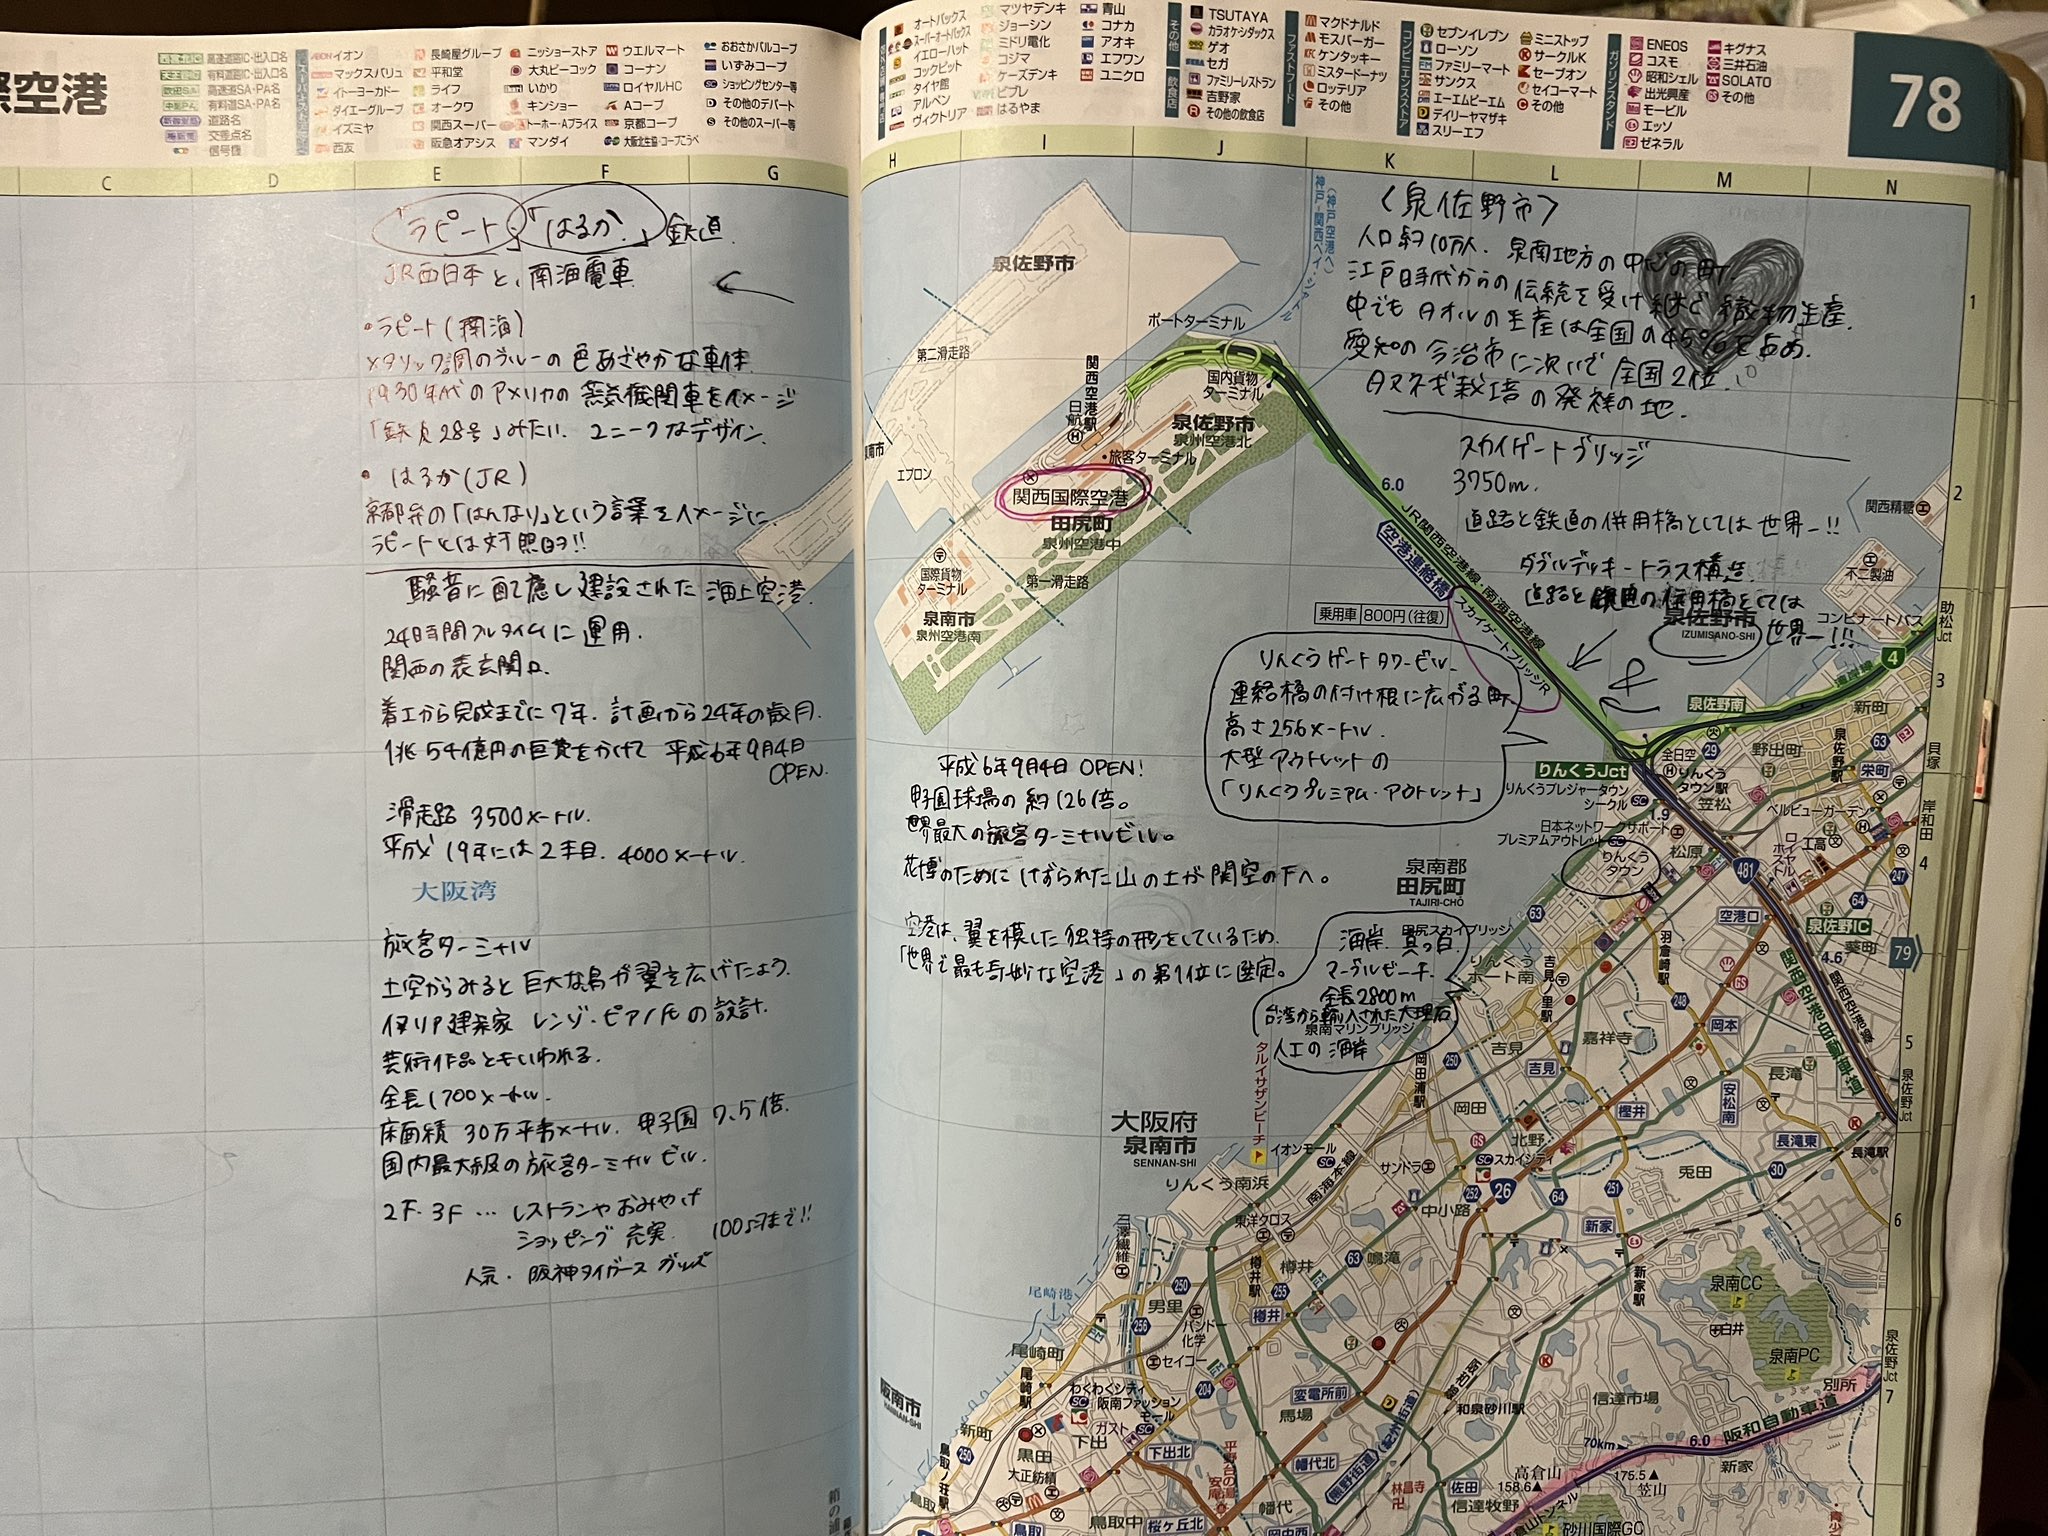 際空港
78
高速道路IC・出入口名
有料道路IC・出入口名
高速道SA・PA名
有料道SA・PA名
道路名
交差点名
信号機
イオン
マックスバリュ
イトーヨーカドー
ダイエーグループ
イズミヤ
西友
長崎屋グループ
平和堂
ライフ
オークワ
関西スーパー
阪急オアシス
ニッショーストア
大丸ピーコック
いかり
キンショー
トーホー・Aプライス
マンダイ
ウエルマート
コーナン
ロイヤルHC
Aコープ
京都コープ
大阪北生協・コープこうべ
おおさかパルコープ
いずみコープ
ショッピングセンター等
その他のデパート
その他のスーパー等
オートバックス
スーパーオートバックス
イエローハット
コックピット
タイヤ館
アルペン
ヴィクトリア
マツヤデンキ
ジョーシン
ミドリ電化
コジマ
ケーズデンキ
ビブレ
はるやま
青山
コナカ
アオキ
エフワン
ユニクロ
その他
飲食店
TSUTAYA
カラオケ・シダックス
ゲオ
セガ
ファミリーレストラン
吉野家
その他の飲食店
ファストフード
マクドナルド
モスバーガー
ケンタッキー
ミスタードーナツ
ロッテリア
その他
コンビニエンスストア
セブンイレブン
ローソン
ファミリーマート
サンクス
エーエムピーエム
デイリーヤマザキ
スリーエフ
ミニストップ
サークルK
セーブオン
セイコーマート
その他
ガソリンスタンド
ENEOS
コスモ
昭和シェル
出光興産
モービル
エッソ
ゼネラル
キグナス
三井石油
SOLATO
その他
C D E F G H I J K L M N
「ラピート」「はるか」鉄道
JR西日本と、南海電車
・ラピート(南海)
メタリック調のブルーの色あざやかな車体
1930年代のアメリカの蒸気機関車をイメージ
「鉄人28号」みたい. ユニークなデザイン.
・はるか(JR)
京都弁の「はんなり」という言葉をイメージに
ラピートとは対照的!!
騒音に配慮し建設された海上空港.
24時間フルタイムに運用.
関西の表玄関口
着工から完成までに7年. 計画から24年の歳月.
1兆54億円の巨費をかけて 平成6年9月4日
OPEN.
滑走路 3500メートル.
平成19年には2本目. 4000メートル.
大阪湾
旅客ターミナル
上空からみると巨大な鳥が翼を広げたよう.
イタリア建築家 レンゾ・ピアノ氏の設計.
芸術作品ともいわれる.
全長1700メートル.
床面積 30万平方メートル. 甲子園 7.5倍.
国内最大級の旅客ターミナルビル.
2F. 3F … レストランやおみやげ
ショッピング充実. 100均まで!!
人気・阪神タイガースグッズ
〈泉佐野市〉
人口約10万人. 泉南地方の中心の町
江戸時代からの伝統を受け継ぐ織物生産.
中でもタオルの生産は全国の45%を占め.
愛知の今治市に次いで全国2位.
タマネギ栽培の発祥の地.
スカイゲートブリッジ
3750m.
道路と鉄道の併用橋としては世界一!!
ダブルデッキートラス構造.
道路と鉄道の併用橋としては
世界一!!!
りんくうゲートタワービル
連絡橋の付け根に広がる町
高さ256メートル.
大型アウトレットの
「りんくうプレミアム・アウトレット」
平成6年9月4日 OPEN!
甲子園球場の約126倍。
世界最大の旅客ターミナルビル。
花博のためにけずられた山の土が関空の下へ。
空港は、翼を模した独特の形をしているため
「世界で最も奇妙な空港」の第1位に選定。
海岸 真っ白.
マーブルビーチ.
全長2800m
台湾から輸入された大理石
人工の海岸
泉佐野市
第二滑走路
エプロン
ポートターミナル
(神戸空港へ)
神戸-関西ベイ・シャトル
関西空港駅
日航
国内貨物
ターミナル
泉佐野市
泉州空港北
旅客ターミナル
関西国際空港
田尻町
泉州空港中
国際貨物
ターミナル
第一滑走路
泉南市
泉州空港南
6.0
JR関西空港線・南海空港線
空港連絡橋
スカイゲートブリッジR
乗用車 800円(往復)
泉佐野市
IZUMISANO-SHI
関西精糖
不二製油
コンビナートバス
助松Jct
4
湾岸線
泉佐野南
新町
野出町
泉佐野駅
63
栄町
貝塚
全日空
29
りんくうJct
りんくう
タウン駅
りんくうプレジャータウン
シークル
笠松
ベルビューガーデン
1.9
日本ネットワークサポート
プレミアムアウトレット
りんくう
タウン
松原
工高
岸和田
481
247
64
空港口
泉佐野IC
葵町
79
4.6
関西空港自動車道
関西空港線
泉南郡
田尻町
TAJIRI-CHŌ
63
田尻スカイブリッジ
りんくう
ポート南
吉見ノ里駅
羽倉崎駅
248
岡本
泉南マリンブリッジ
タルイサザンビーチ
岡田浦駅
250
吉見
嘉祥寺
吉見
岡田
樫井
安松南
長滝
泉佐野Jct
長滝東
長滝駅
30
大阪府
泉南市
SENNAN-SHI
りんくう南浜
イオンモール
南海本線
サンドラ
北野
スカイシティ
26
252
64
251
兎田
中小路
新家
新家駅
東洋クロス
樽井駅
樽井
63
鳴滝
255
樽井
250
男里
バンドー
化学
256
セイコー
204
尾崎港
尾崎町
尾崎駅
わくわくシティ
阪南ファッション
モール
ガスト
下出
下出北
変電所前
馬場
幡代北
幡代
阪和線
和泉砂川駅
信達市場
泉南CC
泉南PC
別所
泉佐野Jct
阪和自動車道
70km
6.0
新家
高倉山
158.6
175.5
笠山
林昌寺
佐田
信達牧野
熊野街道(紀州街道)
砂川国際GC
阪南市
HANNAN-SHI
新町
250
鳥取ノ荘駅
黒田
大正紡績
鳥取
鳥取中
桜ヶ丘北
1
2
3
4
5
6
7